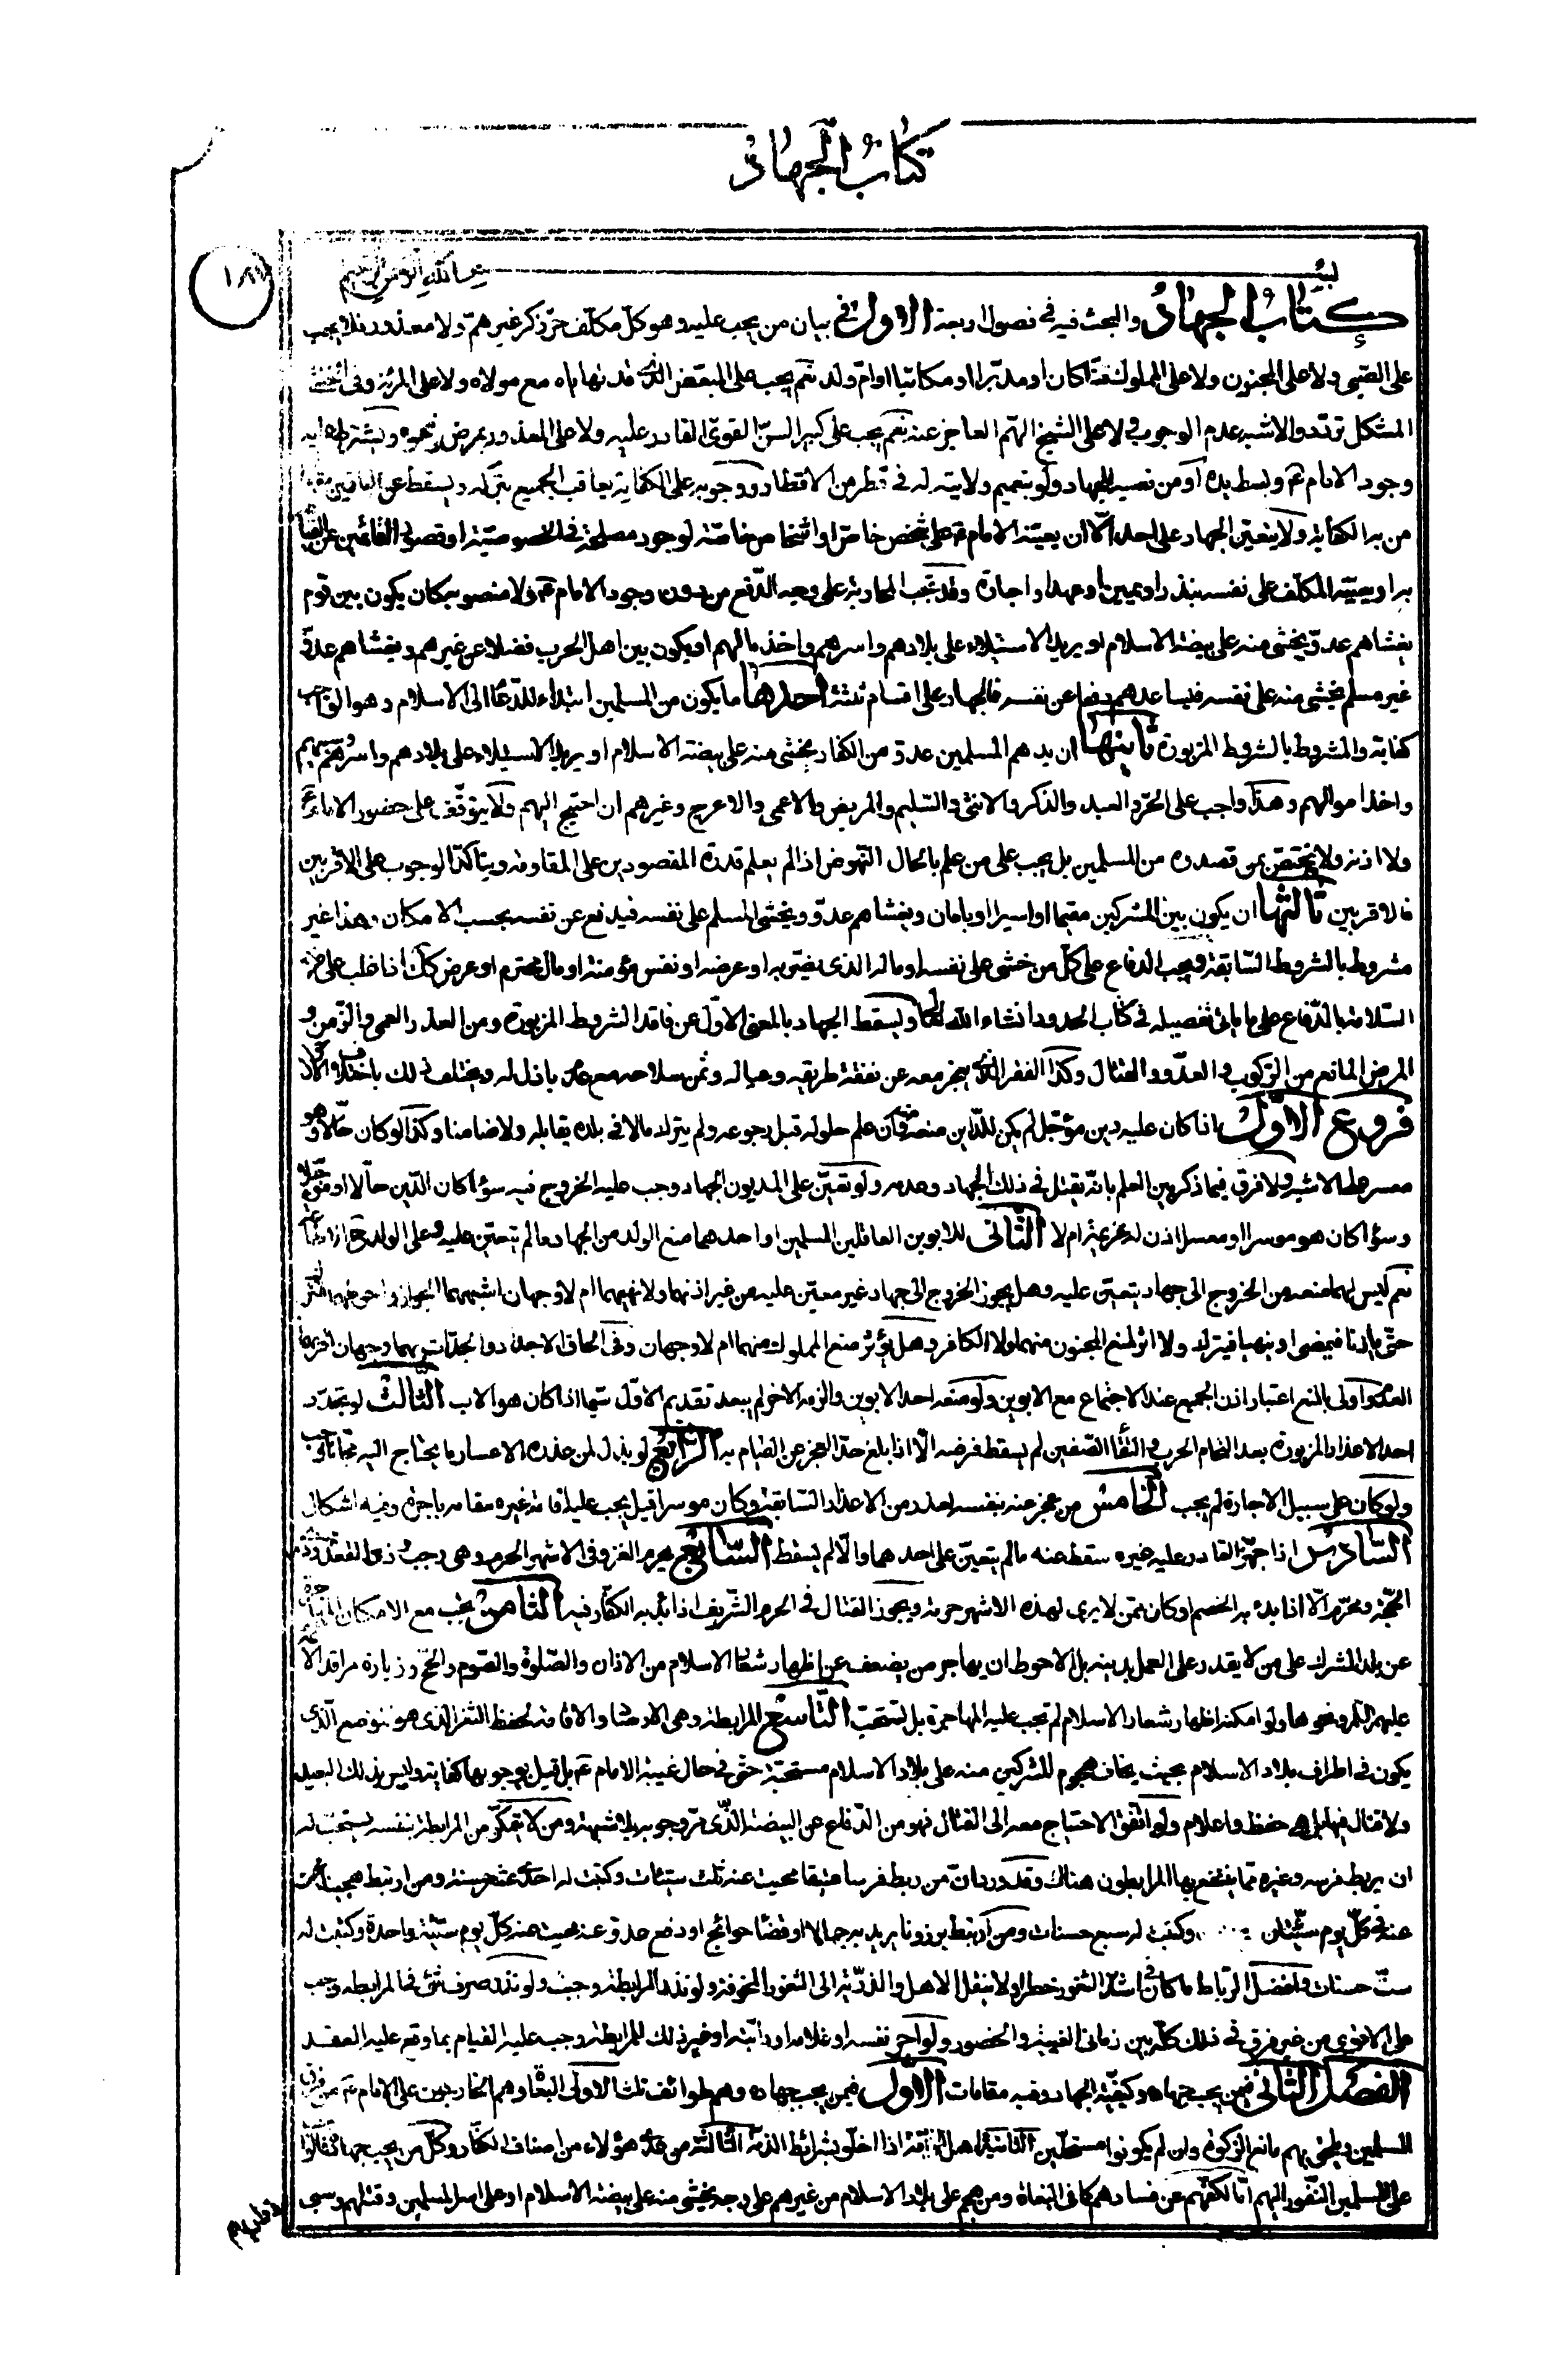 كتاب الجهاد
بسم الله الرحمن الرحيم
كتاب الجهاد والبحث فيه في فصول اربعة الاول في بيان من يجب عليه وهو كلّ مكلّف حرّ ذكر غير همّ ولا معذور فلا يجب
على الصّبي ولا على المجنون ولا على المملوك قنّا كان او مدبّرا او مكاتبا او امّ ولد نعم يجب على المبعّض الذي قد تهاياه مع مولاه ولا على المرئة وفي الخنثى
المشكل تردّد والاشبه عدم الوجوب ولا على الشيخ الهمّ العاجز عنه نعم يجب على كبير السنّ القوىّ القادر عليه ولا على المعذور بمرض ونحوه ويشترط
وجود الامام عَ وبسط يده او من نصبه للجهاد ولو بتعميم ولايته له في قطر من الاقطار ووجوبه على الكفاية يعاقب الجميع بتركه ويسقط عن الباقين
من به الكفاية ولا يتعيّن الجهاد على احد الّا ان يعيّنه الامام عَ على شخص خاصّ او اشخاص خاصّة لوجود مصلحة في الخصوصيّة او قصور القائمين عن القيام
به او يعيّنه المكلّف على نفسه بنذر او يمين او عهد او اجارة وقد تجب المحاربة على وجه الدّفع من دون وجود الامام عَ ولا منصوبه كان يكون بين قوم
يغشاهم عدوّ يخشى منه على بيضة الاسلام او يريد الاستيلاء على بلادهم واسرهم واخذ مالهم او يكون بين اهل الحرب فضلا عن غيرهم ويغشاهم عدوّ
غير مسلم يخشى منه على نفسه فيساعدهم دفعا عن نفسه فالجهاد على اقسام ثلثة احدها ما يكون من المسلمين ابتداء للدّعاء الى الاسلام وهو الواجب
كفاية والمشروط بالشروط المزبورة ثانيها ان يدهم المسلمين عدوّ من الكفار يخشى منه على بيضة الاسلام او يريد الاستيلاء على بلادهم واسرهم وسبيهم
واخذ اموالهم وهذا واجب على الحرّ والعبد والذكر والانثى والسّليم والمريض والاعمى والاعرج وغيرهم ان احتيج اليهم ولا يتوقّف على حضور الامام عَ
ولا اذنه ولا يختصّ بمن قصدوه من المسلمين بل يجب على من علم بالحال النّهوض اذا لم يعلم قدرة المقصودين على المقاومة ويتاكّد الوجوب على الاقربين
فالاقربين ثالثها ان يكون بين المشركين مقيما او اسيرا او بامان ويغشاهم عدوّ ويخشى المسلم على نفسه فيدفع عن نفسه بحسب الامكان وهذا غير
مشروط بالشروط السّابقة ويجب الدفاع على كلّ من خشى على نفسه او ماله الذى يضرّ به او عرضه او نفس مؤمنة او مال محترم او عرض كك اذا غلب على ظنّه
السّلامة بالدّفاع على ما ياتي تفصيله في كتاب الحدود انشاء الله تعالى ويسقط الجهاد بالمعنى الاوّل عن فاقد الشروط المزبورة ومن العذر العمى والزّمن و
المرض المانع من الركوب والعدو والقتال وكذا الفقر الذي يعجز معه عن نفقة طريقه وعياله وثمن سلاحه مع عدم باذل له ويختلف ذلك باختلاف
فروع الاوّل اذا كان عليه دين مؤجّل لم يكن للدّاين منعه وان علم حلوله قبل رجوعه ولم يترك مالا في بلده يقابله ولا ضامنا وكذا لو كان حالّا وهو
معسر على الاشبه ولا فرق فيما ذكر بين العلم بانّه يقتل في ذلك الجهاد وعدمه ولو تعيّن على المديون الجهاد وجب عليه الخروج فيه سواء كان الدّين حالّا او مؤجّلا
وسواء كان هو موسرا او معسرا اذن له غريمه ام لا الثّاني للابوين العاقلين المسلمين او احدهما منع الولد من الجهاد ما لم يتعيّن عليه وعلى الولد ح
نعم ليس لهما منعه من الخروج الى جهاد يتعيّن عليه وهل يجوز الخروج الى جهاد غير معيّن عليه من غير اذنهما ولا نهيهما ام لا وجهان اشبههما الجواز واحوطهما
حتّى ياذنا فيمضى او ينهيا فيترك ولا اثر لمنع المجنون منهما ولا الكافر وهل يؤثر منع المملوك منهما ام لا وجهان وفي الحاق الاجداد والجدّات بهما وجهان
العدم واولى بالمنع اعتبار اذن الجميع عند الاجتماع مع الابوين ولو منعه احد الابوين والزمه الاخر لم يبعد تقديم الاوّل سيّما اذا كان هو الاب الثّالث لو تجدّد
احد الاعذار المزبورة بعد التحام الحرب والتقاء الصّفين لم يسقط فرضه الّا اذا بلغ حدّ العجز عن القيام به الرّابع لو بذل لمن عذره الاعسار ما يحتاج اليه مجانا وجب
ولو كان على سبيل الاجارة لم يجب الخامس من عجز عنه بنفسه لعذر من الاعذار السّابقة وكان موسرا قيل يجب عليه اقامة غيره مقامه باجرة وفيه اشكال
السّادس اذا جهّز القادر عليه غيره سقط عنه ما لم يتعيّن على احدهما والّا لم يسقط السّابع يحرم الغزو في الاشهر الحرم وهي رجب وذى القعدة وذى
الحجّة ومحرّم الّا اذا بدء به الخصم او كان ممّن لا يرى لهذه الاشهر حرمة ويجوز القتال في الحرم الشّريف اذا بدء به الكفّار فيه الثامن يجب مع الامكان
عن بلد الشرك على من لا يقدر على العمل بدينه بل الاحوط ان يهاجر من يضعف عن اظهار شعائر الاسلام من الاذان والصّلوة والصّوم والحجّ وزيارة مراقد
عليهم السّلم ونحوها ولو امكنه اظهار شعار الاسلام لم تجب عليه المهاجرة بل تستحبّ التّاسع المرابطة وهي الارصاد والاقامة لحفظ الثغر الذى هو الموضع الّذى
يكون في اطراف بلاد الاسلام بحيث يخاف هجوم المشركين منه على بلاد الاسلام مستحبّة حتّى في حال غيبة الامام عَ بل قيل بوجوبها كفاية وليس بذلك البعيد
ولا قتال فيها بل هي حفظ واعلام ولو اتّفق الاحتياج معه الى القتال فهو من الدّفاع عن البيضة الّذى مرّ وجوبه بلا شبهة ومن لا يتمكّن من المرابطة بنفسه يستحبّ له
ان يربط فرسه وغيره ممّا ينتفع بها المرابطون هناك وقد ورد انّ من ربط فرسا عتيقا محيت عنه ثلث سيّئات وكتبت له احدى عشر حسنة ومن ارتبط هجينا محيت
عنه في كلّ يوم سيّئتان وكتبت له سبع حسنات ومن ارتبط برزونا يريد به جمالا او قضاء حوائج او دفع عدوّ عنه محيت عنه كلّ يوم سيّئة واحدة وكتبت له
ستّ حسنات وافضل الرّباط ما كان في اشدّ الثغور خطرا ولا ينقل الاهل والذرّيّة الى الثغور المخوفة ولو نذر المرابطة وجبت ولو نذر صرف شيئ في المرابطة وجب
على الاقوى من غير فرق في ذلك كلّه بين زماني الغيبة والحضور ولو اجر نفسه او غلامه او دابّته او غير ذلك للمرابطة وجب عليه القيام بما وقع عليه العقد
الفصل الثّاني فيمن يجب جهاده وكيفيّة الجهاد وفيه مقامات الاوّل فيمن يجب جهاده وهم طوائف ثلث الاولى البغاة وهم الخارجون على الامام عَ من فرق
المسلمين ويلحق بهم مانع الزكوة وان لم يكونوا مستحلّين الثّانية اهل الذمّة اذا اخلّوا بشرائط الذمّة الثّالثة من عدا هؤلاء من اصناف الكفّار وكلّ من يجب جهاده فالواجب
على المسلمين النّفور اليهم امّا لكفّهم عن فسادهم كما في البغاة ومن هجم على بلاد الاسلام من غيرهم على وجه يخشى منه على بيضة الاسلام او على اسر المسلمين وقتلهم وسبى